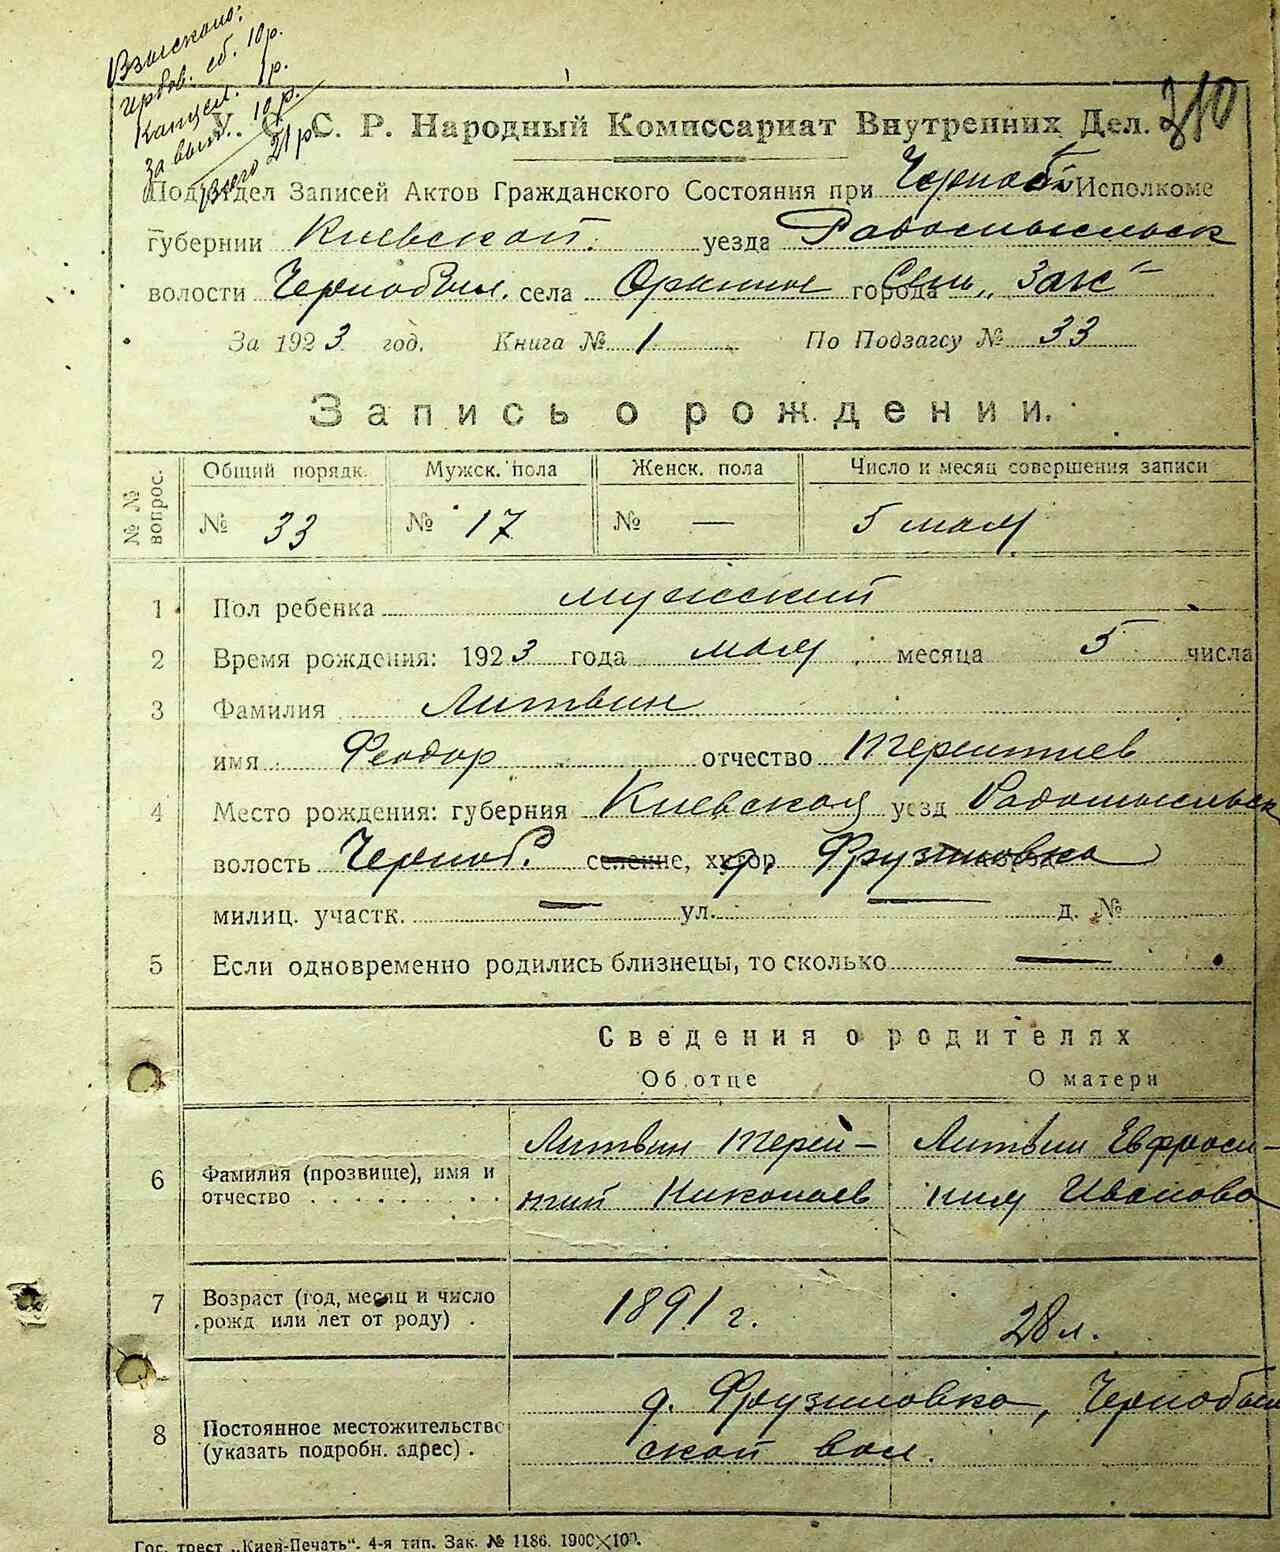 Взыскано:
гербов. сб. 10р.
Канцел. 1р.
за вып. 10р.
Всего 21р
310
У. С. С. Р. Народный Комиссариат Внутренних Дел.
Подотдел Записей Актов Гражданского Состояния при Черноб. Исполкоме
губернии Киевской уезда Радомысльск
волости Чернобыл. села города
За 1923 год. Книга № 1 По Подзагсу № 33
Запись о рождении.
№ № вопрос. Общий порядк. Мужск. пола Женск. пола Число и месяц совершения записи
№ 33 № 17 № — 5 мая
1 Пол ребенка мужский
2 Время рождения: 1923 года мая месяца 5 числа
3 Фамилия Литвин
имя Феодор отчество Терентиев
4 Место рождения: губерния Киевская уезд Радомысльск
волость Черноб. селение, хутор д. Фрузиновка
милиц. участк. — ул. — д. №
5 Если одновременно родились близнецы, то сколько —
Сведения о родителях
Об отце О матери
6 Фамилия (прозвище), имя и отчество Литвин Терен-
тий Николаев Литвин Евфроси-
ния Иванова
7 Возраст (год, месяц и число рожд или лет от роду) . 1891 г. 28 л.
8 Постоянное местожительство (указать подробн. адрес) . д. Фрузиновка, Чернобыль
ской вол.
Гос. трест „Киев-Печать“. 4-я тип. Зак. № 1186. 1900×100.